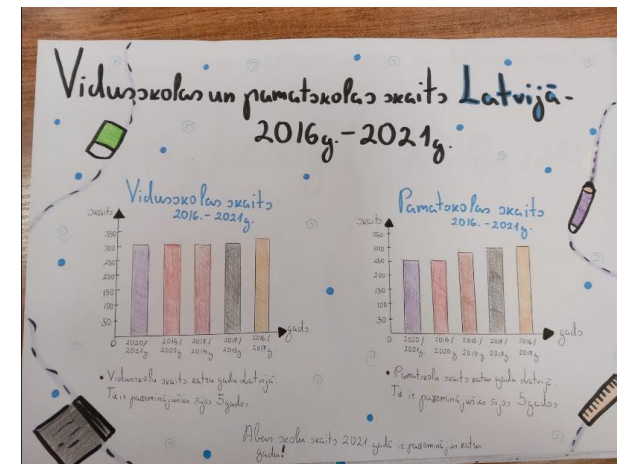 Vidusskolas un pamatskolas skaits Latvijā -
2016g. - 2021g.
Vidusskolas skaits
2016. - 2021g.
skaits
350
300
250
200
150
100
50
0
2020/ 2019/ 2018/ 2017/ 2016/
2021g 2020g 2019g 2018g 2017g
gads
• Vidusskolu skaits katru gadu Latvijā.
Tie ir pazeminājušies šajos 5 gados
Pamatskolas skaits
2016. - 2021g.
skaits
350
300
250
200
150
100
50
0
2020/ 2019/ 2018/ 2017/ 2016/
2021g 2020g 2019g 2018g 2017g
gads
• Pamatskolu skaits katru gadu Latvijā.
Tie ir pazeminājušies šajos 5 gados
Abas skolu skaits 2021 gadā ir pazeminājies katru
gadu!